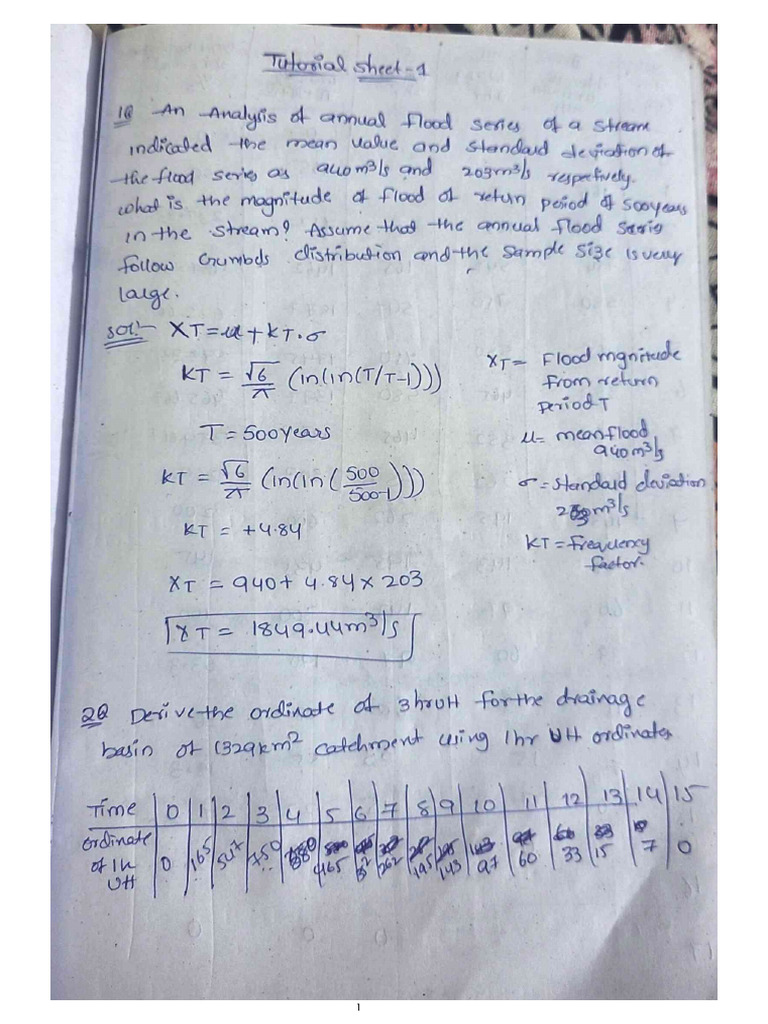 Tutorial Sheet-1
1Q An Analysis of annual flood series of a stream
indicated the mean value and standard deviation of
the flood series as 940m³/s and 203m³/s respectively.
what is the magnitude of flood of return period of 500years
in the stream? Assume that the annual flood series
follow Gumbels distribution and the sample size is very
large.
sol:- XT=μ+KT.σ
KT = √6/π (ln(ln(T/T-1)))
T = 500years
KT = √6/π (ln(ln(500/500-1)))
KT = +4.84
XT = 940+ 4.84 x 203
XT = 1849.44m³/s
XT = Flood mgnitude
from return
period T
μ= mean flood
940m³/s
σ=standard deviation
203m³/s
KT=frequency
factor.
2Q Derive the ordinate of 3hr UH for the drainage
basin of 1329km² catchment using 1hr UH ordinates
Time 0 1 2 3 4 5 6 7 8 9 10 11 12 13 14 15
ordinate 0 165 750 465 262 195 143 97 60 33 15 7 0
of 1h
UH
1